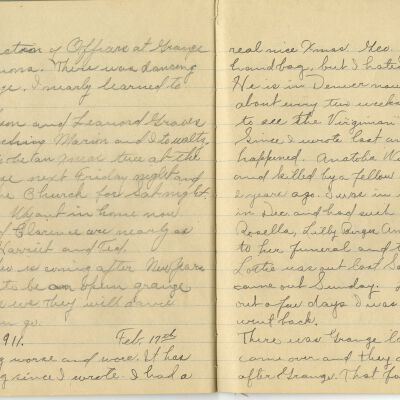 ction of Officers at Grange
There was dancing
I nearly learned to
son and Leanord Graves
ching Marion and I to waltz
at the
next Friday night and
Church for Sat night.
in home now
Clarence are nearly as
Harriet and Ted.
is coming after New Years
to be an open grange
we they will drive
go.
911. Feb. 17th
worse and worse. It has
since I wrote. I had a
real nice Xmas. Geo.
handbag, but I hated
He is in Denver now
about every two weeks
to see the Virginian
Since I wrote last an
happened. Anatolia
and killed by a fellow
2 years ago. I was in
in Dec and had such
Rosella, Lilly
to her funeral and t
Lottie was out last S
came out Sunday.
out a few days I was
went back.
There was Grange la
came over and they
after Grange. That